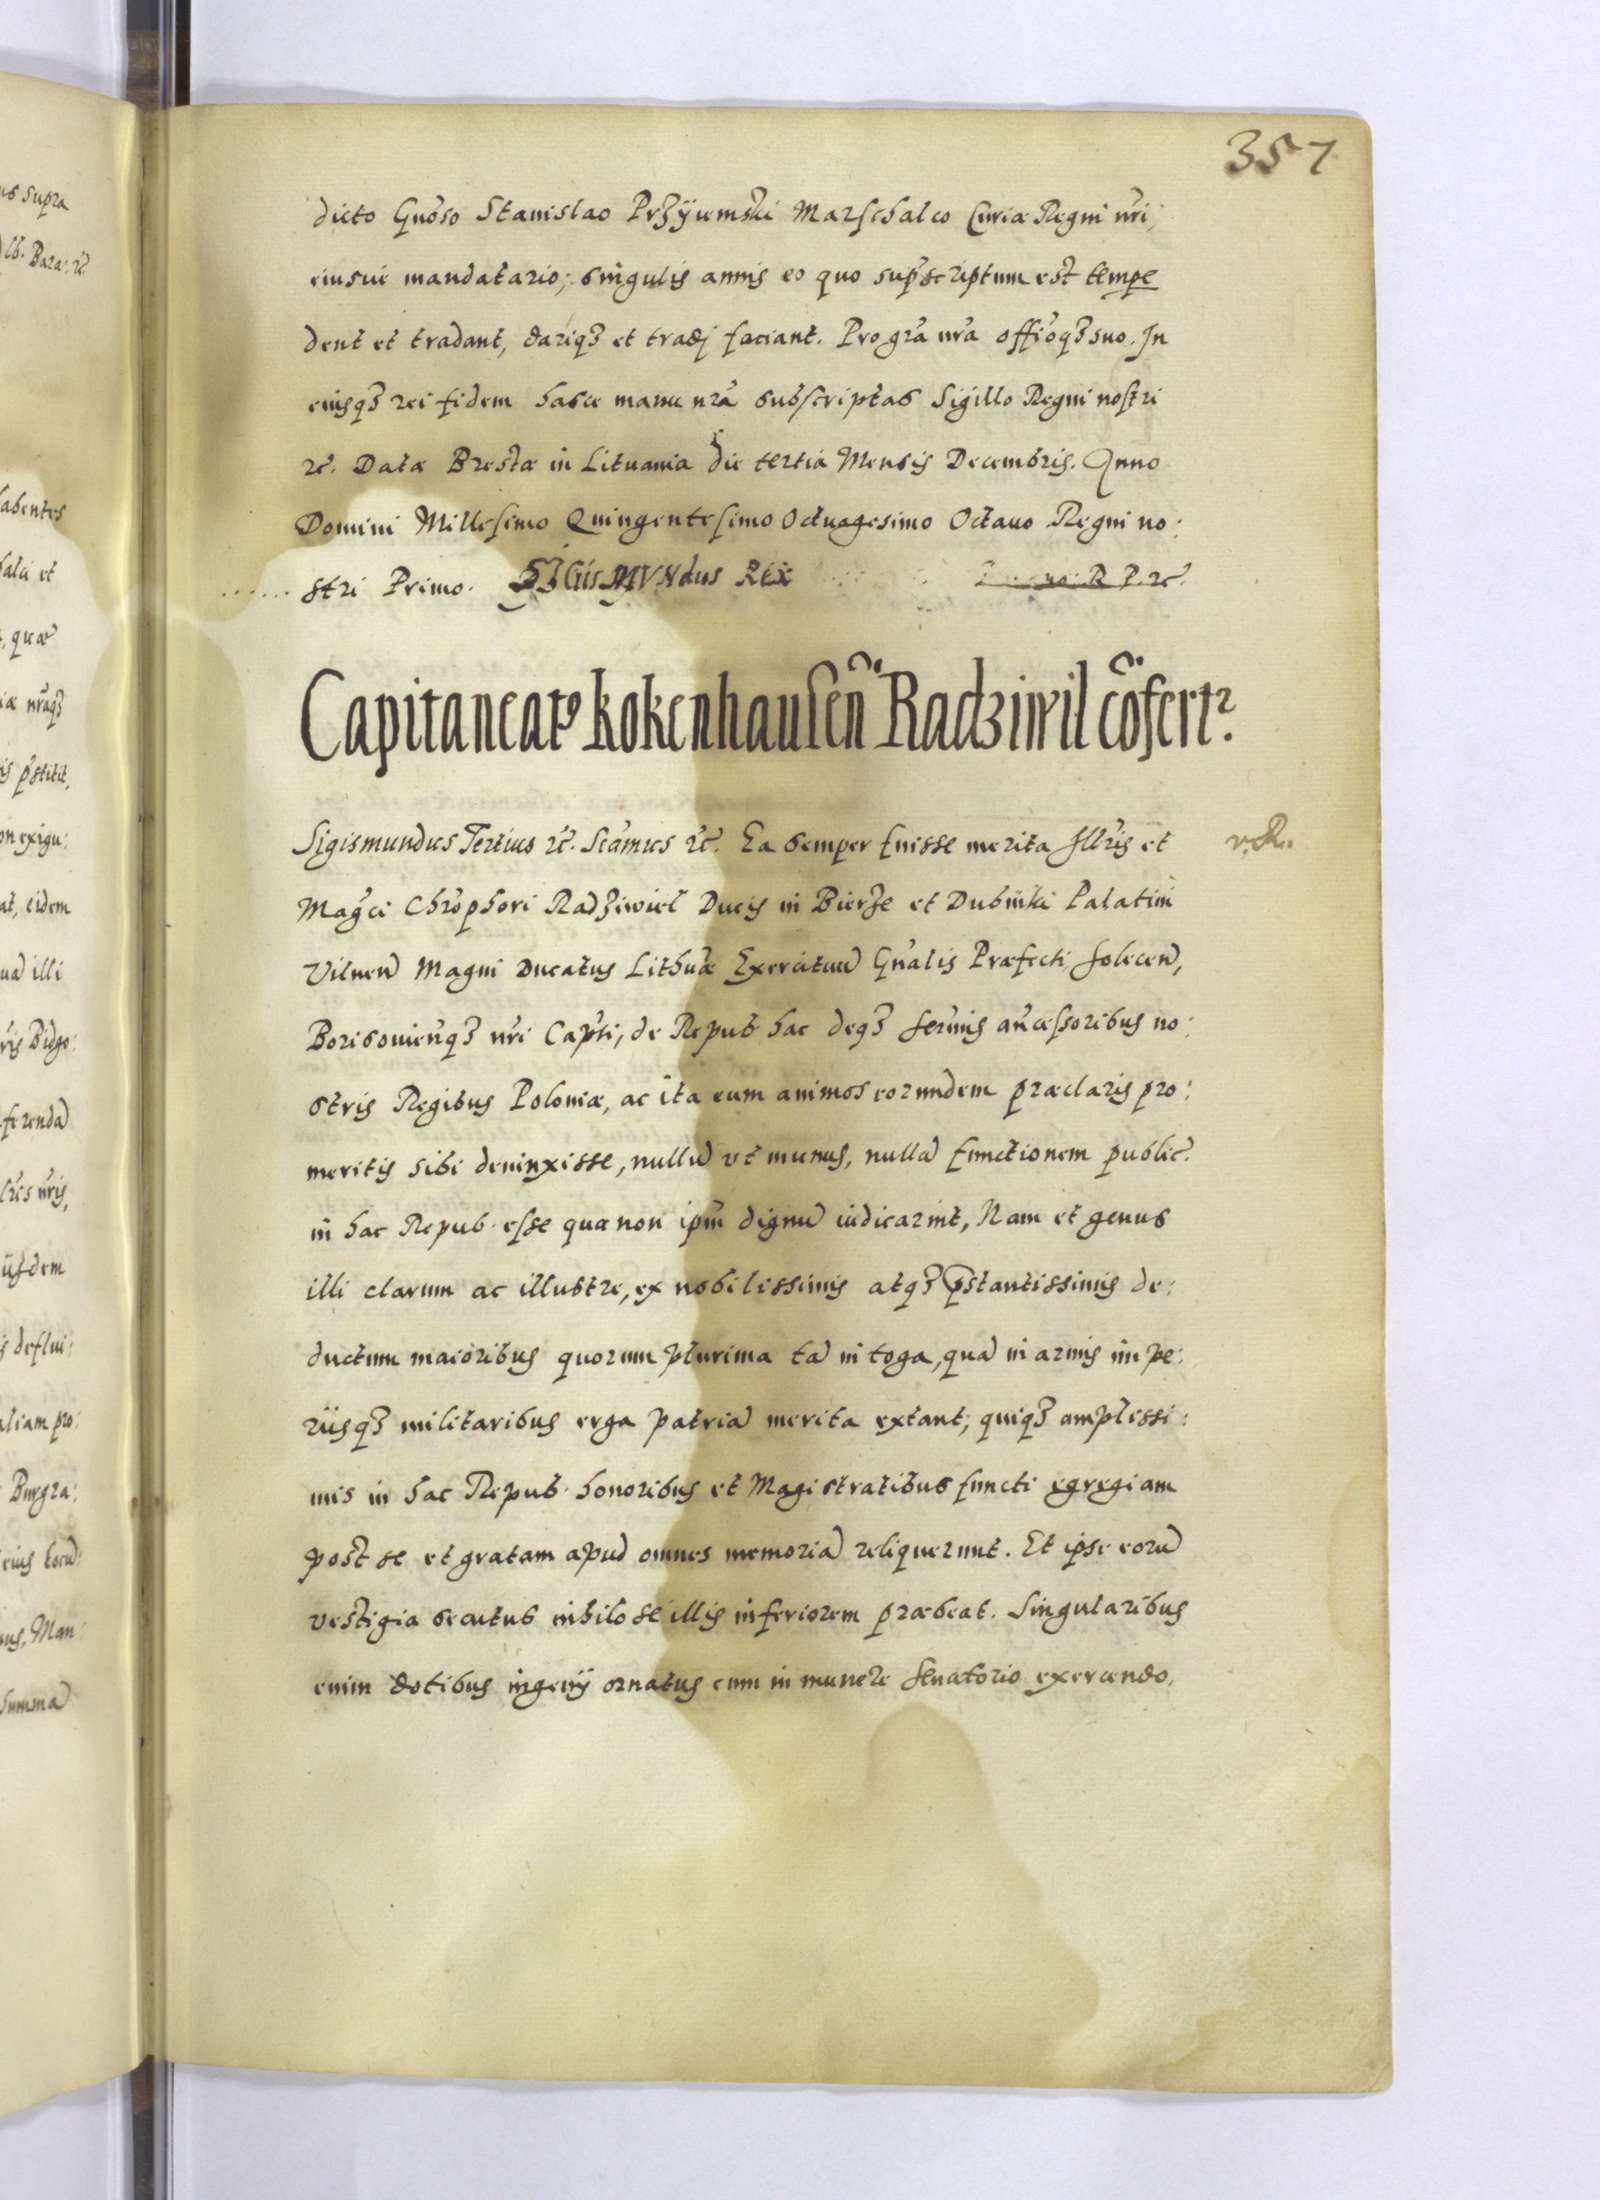 357
dicto Gnoso Stanislao Przÿiemski Marschalco Curiæ Regni nri,
eiusue mandatario; singulis annis eo quo supscriptum est tempe
dent et tradant, dariqз et tradj faciant. Pro gra nra offioqз suo. In
eiusqз rei fidem hasce manu nra subscriptas Sigillo Regni nostri
rc. Datæ Brestæ in Lituania die tertia Mensis Decembris. Anno
Domini Millesimo Quingentesimo Octuagesimo Octauo Regni no:
stri Primo. SIGisMVNdus REX R P. rc.
Capitaneatꝰ kokenhausen Radziwil cōfertr.
Sigismundus Tertius rc. Scamus rc. Ea semper fuisse merita Illris et
v. R.
Magci Chrophori Radziwiel Ducis in Bierze et Dubinki Palatini
Vilnen Magni Ducatus Lithuæ Exercituu Gnalis Præfecti Solecen,
Borisouienqз nri Capti, de Repub hac deqз sermis ancessoribus no:
stris Regibus Poloniæ, ac ita eum animos eorundem præclaris pro:
meritis sibi deuinxisse, nullu vt munus, nulla functionem public.
in hac Repub. esse qua non ipm dignu iudicarint, Nam et genus
illi clarum ac illustre, ex nobilissimis atqз pstantissimis de:
ductum maioribus quorum plurima ta in toga, qua in armis impe:
riisqз militaribus erga patria merita extant, quiqз amplissi:
mis in hac Repub. honoribus et Magistratibus functi egregiam
post se et gratam apud omnes memoria reliquerunt. Et ipse eoru
vestigia secutus nihilo se illis inferiorem præbeat. Singularibus
enim dotibus ingenij ornatus cum in munere Senatorio exercendo,